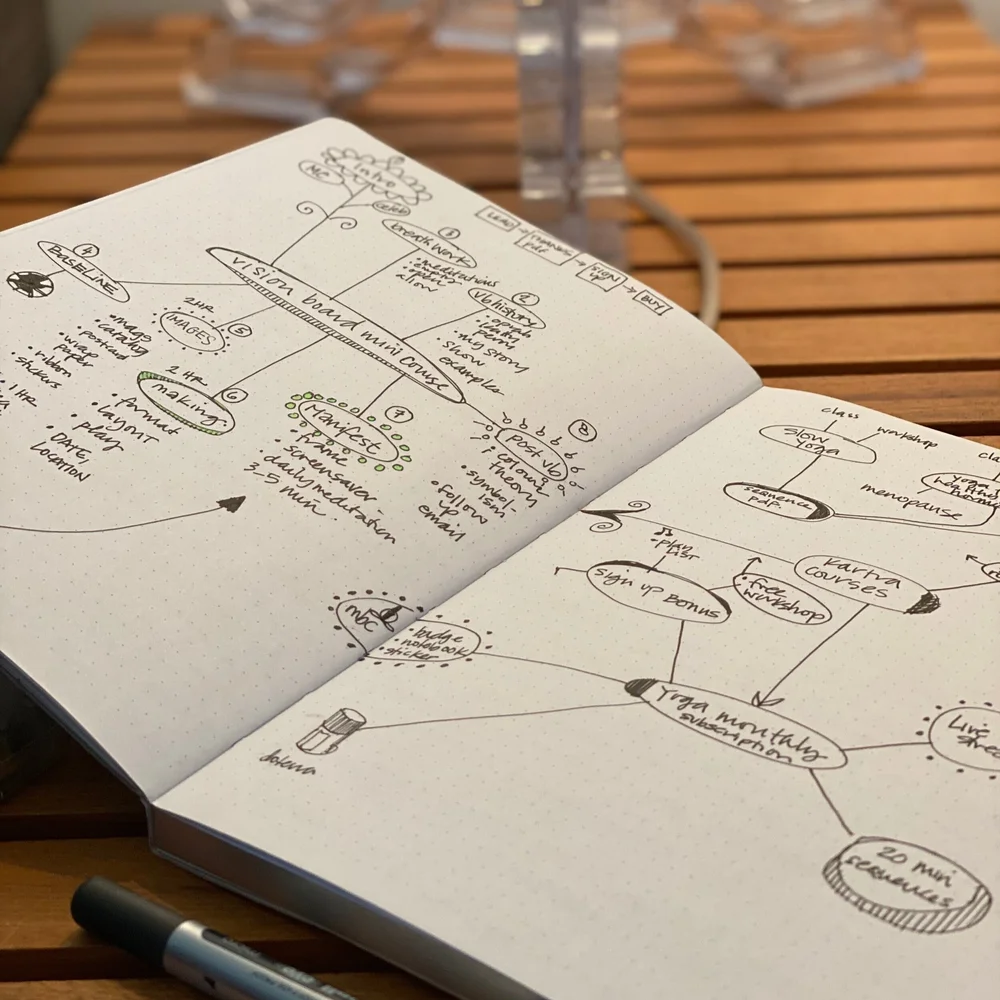 Intro
MC
celeb
LEAD → THANKS → SIGN → BUY
pdf.
UP
1
breathwork
• meditations
• open
2
vb history
• oprah
• my story
• show
examples
vision board mini course
4
BASELINE
2HR
IMAGES
5
• mags
• catalog
• postcard
• wrap
paper
• ribbon
• stickers
1 HR
2 HR
making
6
• format
• layout
• play
• DATE,
LOCATION
7
Manifest
• frame
• screensaver
• daily meditation
3-5 min.
8
post vb
• colour
theory
• symbol-
ism
• follow
up
email
class
workshop
slow
yoga
sequence
pdf.
menopause
yoga
cla
• play
LIST
sign up Bonus
• free
workshop
Kartra
courses
mbc
• badge
• notebook
• sticker
Yoga monthly
subscription
Live
strea
20 min
sequences